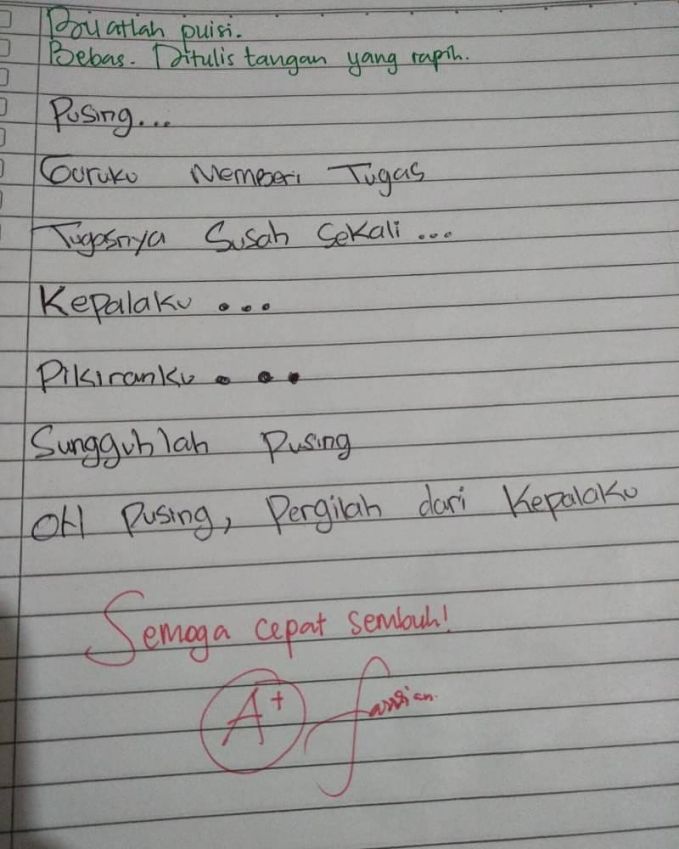 Buatlah puisi.
Bebas. Ditulis tangan yang rapih.
Pusing...
Guruku Memberi Tugas
Tugasnya Susah Sekali ...
Kepalaku ...
Pikiranku ...
Sungguhlah Pusing
OH Pusing, Pergilah dari Kepalaku
Semoga cepat sembuh!
A+